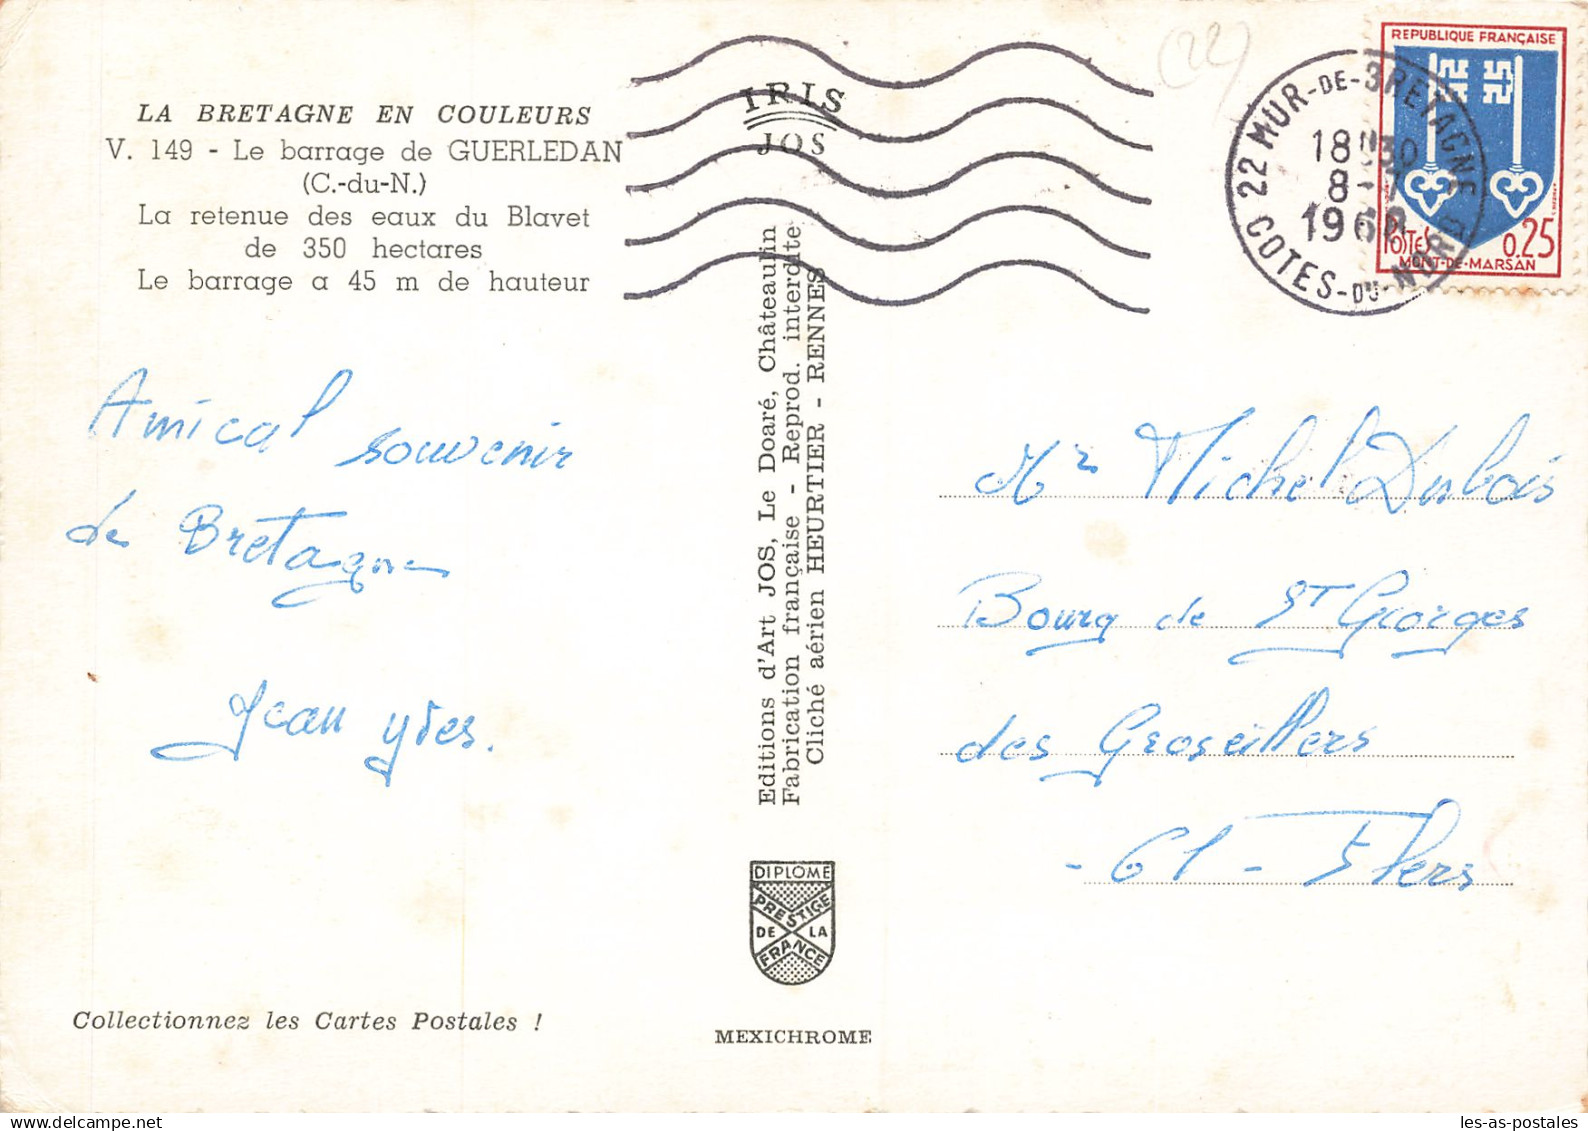 LA BRETAGNE EN COULEURS
V. 149 - Le barrage de GUERLEDAN
(C.-du-N.)
La retenue des eaux du Blavet
de 350 hectares
Le barrage a 45 m de hauteur
Amical souvenir
de Bretagne
Jean Yves.
Collectionnez les Cartes Postales !
IRIS
JOS
Editions d'Art JOS, Le Doaré, Châteaulin
Fabrication française - Reprod. interdite
Cliché aérien HEURTIER - RENNES
DIPLOME
PRESTIGE
DE LA
FRANCE
MEXICHROME
(22)
22 MUR-DE-BRETAGNE
18H30
8-7
COTES-DU-NORD
REPUBLIQUE FRANÇAISE
POSTES 0.25
MONT-DE-MARSAN
Mr Michel Dubois
Bourg de St Georges
des Groseillers
- 61 - Flers
les-as-postales